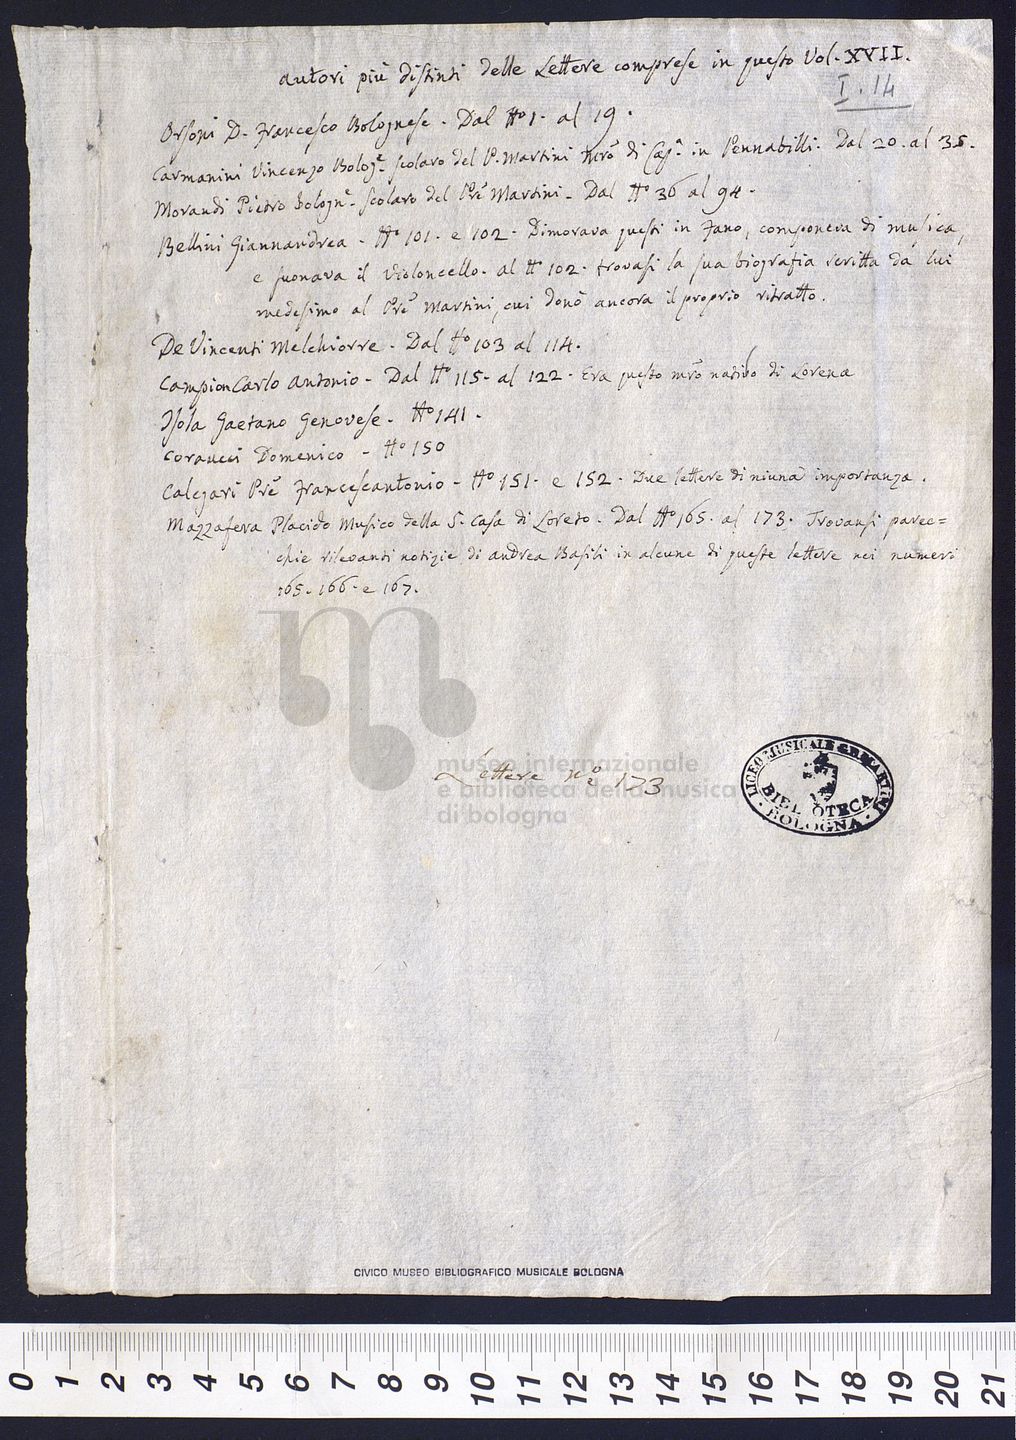 Autori più distinti delle Lettere comprese in questo Vol. XVII.
I. 14
Orsoni D. Francesco Bolognese. Dal No 1. al 19.
Carmanini Vincenzo Bologe. scolaro del P. Martini Mro di Capa. in Pennabilli. Dal 20. al 35.
Morandi Pietro Bologne. scolaro del Pre Martini. Dal No 36 al 94.
Bellini Giannandrea. No 101. e 102. Dimorava questi in Fano, componeva di musica,
e suonava il Violoncello. al No 102. trovasi la sua biografia scritta da lui
medesimo al Pre Martini, cui donò ancora il proprio ritratto.
De Vincenti Melchiorre. Dal No 103 al 114.
Campion Carlo Antonio. Dal No 115. al 122. Era questo mro nativo di Lorena
Isola Gaetano Genovese. No 141.
Coraucci Domenico. No 150
Calegari Pre Francescantonio. No 151. e 152. Due lettere di niuna importanza.
Mazzafera Placido Musico della S. Casa di Loreto. Dal No 165. al 173. Trovansi parec=
chie rilevanti notizie di Andrea Basili in alcune di queste lettere nei numeri
165. 166. e 167.
museo internazionale
e biblioteca della musica
di bologna
Lettere no 173
LICEO MUSICALE G.B. MARTINI
BIBLIOTECA
BOLOGNA
CIVICO MUSEO BIBLIOGRAFICO MUSICALE BOLOGNA
0 1 2 3 4 5 6 7 8 9 10 11 12 13 14 15 16 17 18 19 20 21